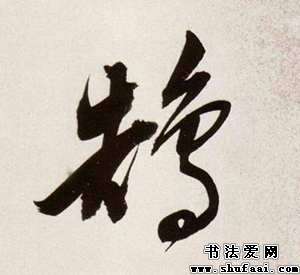 鹄
书法爱网
www.shufaai.com